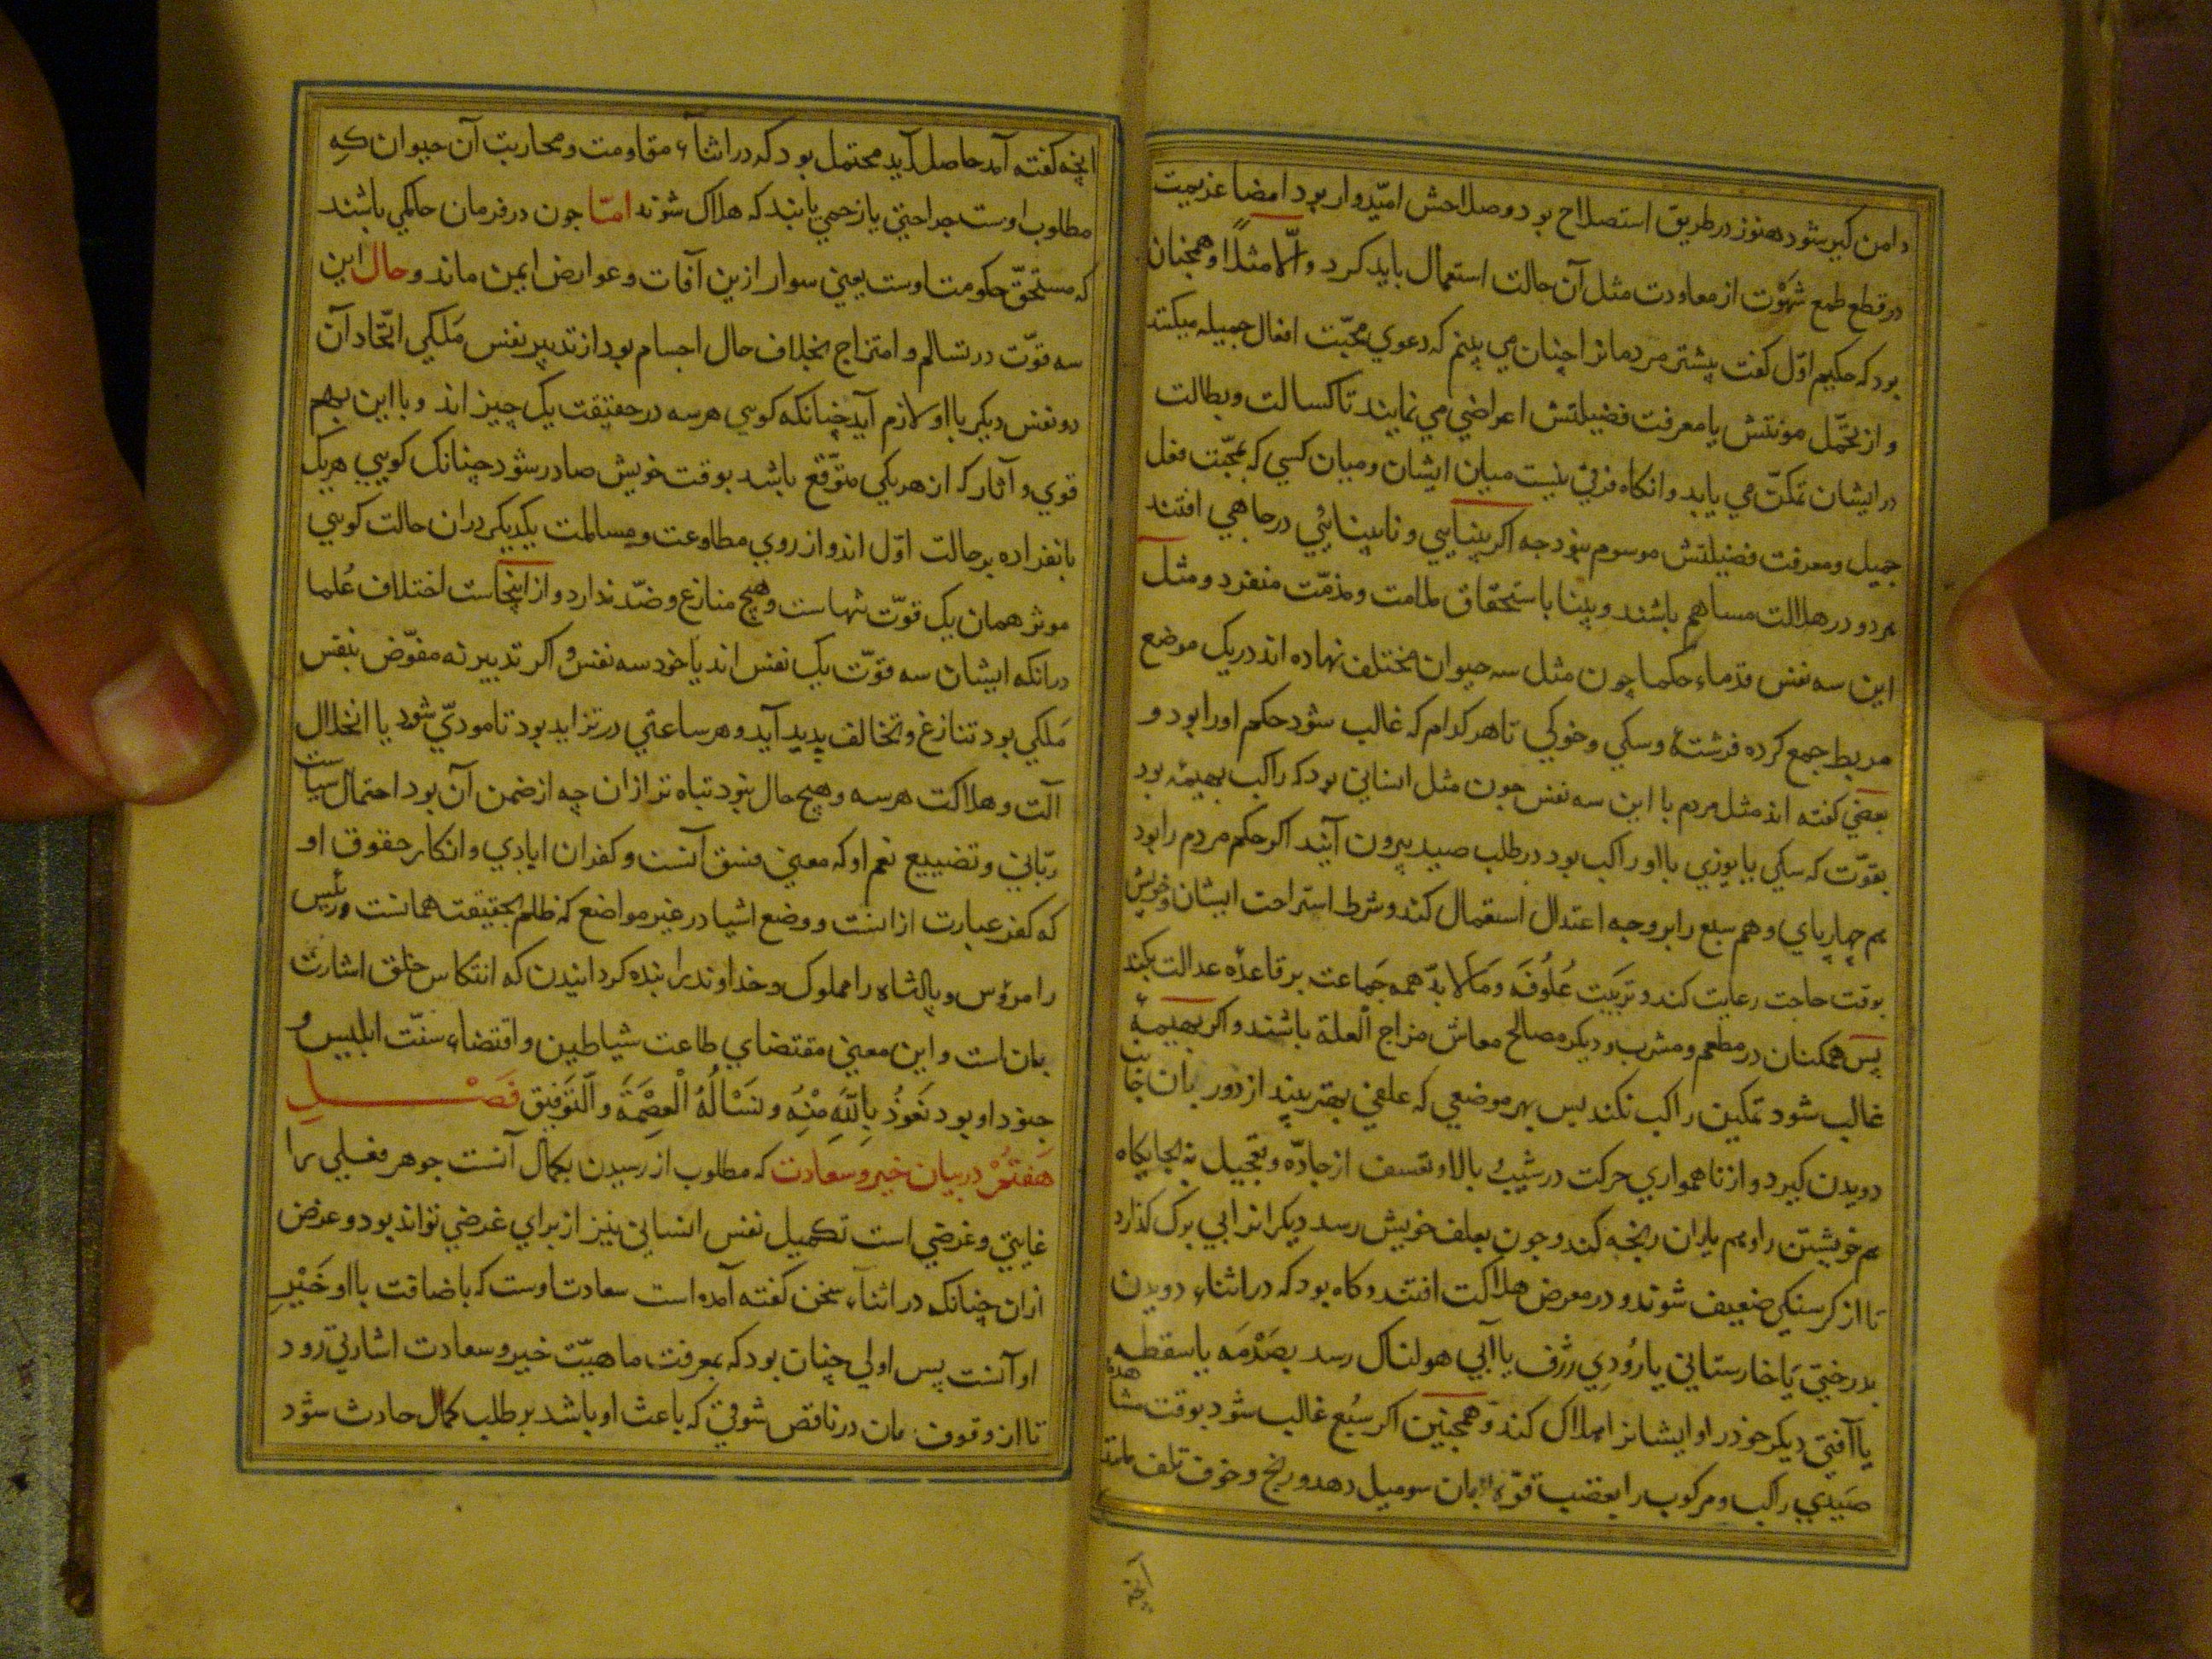 دامن كیر شود هنوز در طریق استصلاح بود و صلاحش امیّدوار بود امضا عزیمت
در قطع طمع شهوت از معاودت مثل آن حالت استعمال باید كرد و الّا مثلاً او همچنان
بود كه حكیم اوّل كفت پیشتر مردمانرا چنان می بینم كه دعوي محبّت افعال جمیله میكنند
و از تحمّل مونتش با معرفت فضیلتش اعراضي مي نمایند تا كسالت و بطالت
در ایشان تمكّن مي یابد و انكاه فرقي نیست میان ایشان و میان كسي كه بمحبّت فعل
جمیل و معرفت فضیلتش موسوم نبود چه اكر بینایي و نابینائي در چاهي افتند
هر دو در هلاكت مساهم باشند و بینا باستحقاق ملامت و مذمّت منفرد و مثل
این سه نفس قدماء حكما چون مثل سه حیوان مختلف نهاده اند در یك موضع
مربط جمع كرده فرشتهٔ و سكي و خوكي تا هر كدام كه غالب شود حكم او را بود و
بعضي كفته اند مثل مردم با این سه نفس چون مثل انساني بود كه راكب بهیمهٔ بود
بقوّت كه سكي یا یوزي با او راكب بود در طلب صید بیرون آیند اكر حكم مردم را بود
هم چهارپاي و هم سبع را بر وجه اعتدال استعمال كند و شرط استراحت ایشان و خویش
بوقت حاجت رعایت كند و تربیت عُلُوفَه و مَالابدّ همه جَماعت بر قاعدهٔ عدالت بكند
پس همكنان در مطعم و مشرب و دیكر مصالح معاش مزاج العلة باشند و اكر بهیمهٔ
غالب شود تمكین راكب نكند پس بهر موضعي كه علفي بهتر بیند از دور بان جانب
دویدن كیرد و از ناهمواري حركت در شیب و بالا و تعسف از جادّه و تعجیل نه بجایكاه
هم خویشتن را و هم یاران رنجه كند و چون بعلف خویش رسد دیكرانرا بي برك كذارد
تا از كرسنكي ضعیف شوند و در معرض هلاكت افتند و كاه بود كه در اثناء دویدن
بدرختي یا خارستاني یا رُودي ژرف یا آبي هولناك رسد بصَدْمَه یا سقطه
یا آفتي دیكر خود را و ایشانرا هلاك كند و همچنین اكر سبُع غالب شود بوقت مشاهده
صَیدي راكب و مركوب را بعضب قوّه بان سو میل دهد و رنج و خوف تلف مانند
انچه كفته آمد حاصل آید محتمل بود كه در اثناء مقاومت و محاربت آن حیوان كه
مطلوب اوست جراحتي یا زخمي یابند كه هلاك شوند امّا چون در فرمان حاكمي باشند
كه مستحقّ حكومت اوست یعني سوار ازین آفات و عوارض ایمن ماند و حال این
سه قوّت در تسالم و امتزاج بخلاف حال اجسام بود از تدبیر نفس مَلكي اتّحاد آن
دو نفس دیكر با او لازم آید چنانكه كویي هر سه در حقیقت یك چیز اند و با این بهم
قوي و آثار كه از هر یكي متوّقع باشد بوقت خویش صادر شود چنانك كویي هر یك
بانفراده بر حالت اوّل اند و از روي مطاوعت و مسالمت یكدیكر دران حالت كویي
موثر همان یك قوّت تنهاست و هیچ منازع و ضدّ ندارد و از اینجاست اختلاف عُلما
درانكه ایشان سه قوّت یك نفس اند یا خود سه نفس و اكر تدبیر نه مفوّض بنفس
مَلكي بود تنازع و تخالف پدید آید و هر ساعتي در تزاید بود تا مودّي شود با انحلال
آلت و هلاكت هر سه و هیچ حال نبود تباه تر ازان چه از ضمن آن بود احتمال سیاست
ربّاني و تضییع نعم او كه معني فسق آنست و كفران ایادي و انكار حقوق او
كه كفر عبارت ازانست و وضع اشیا در غیر مواضع كه ظلم بحقیقت همانست و رئیس
را مرؤس و پادشاه را مملوك و خداوند را بنده كردانیدن كه انتكاس خلق اشارت
بان است و این معني مقتضاي طاعت شیاطین و اقتضاء سنّت ابلیس و
جنود او بود نَعوُذُ بِاللّٰهِ مِنْهُ و نسْاَلُهُ الْعِصْمَةَ وَ التَّوْفِیق فَصْــــلِ
هَفتُمْ در بیان خیر و سعادت كه مطلوب از رسیدن بكمال آنست جوهر فعلي را
غایتي و غرضي است تكمیل نفس انساني نیز از براي غرضي تواند بود و غرض
ازان چنانكه در اثناء سخن كفته آمده است سعادت اوست كه باضافت با او خَیْرِ
او آنست پس اولي چنان بود كه بمعرفت ماهیّت خیر و سعادت اشارتي رود
تا از وقوف بان در ناقص شوقي كه باعث او باشد بر طلب كمال حادث شود